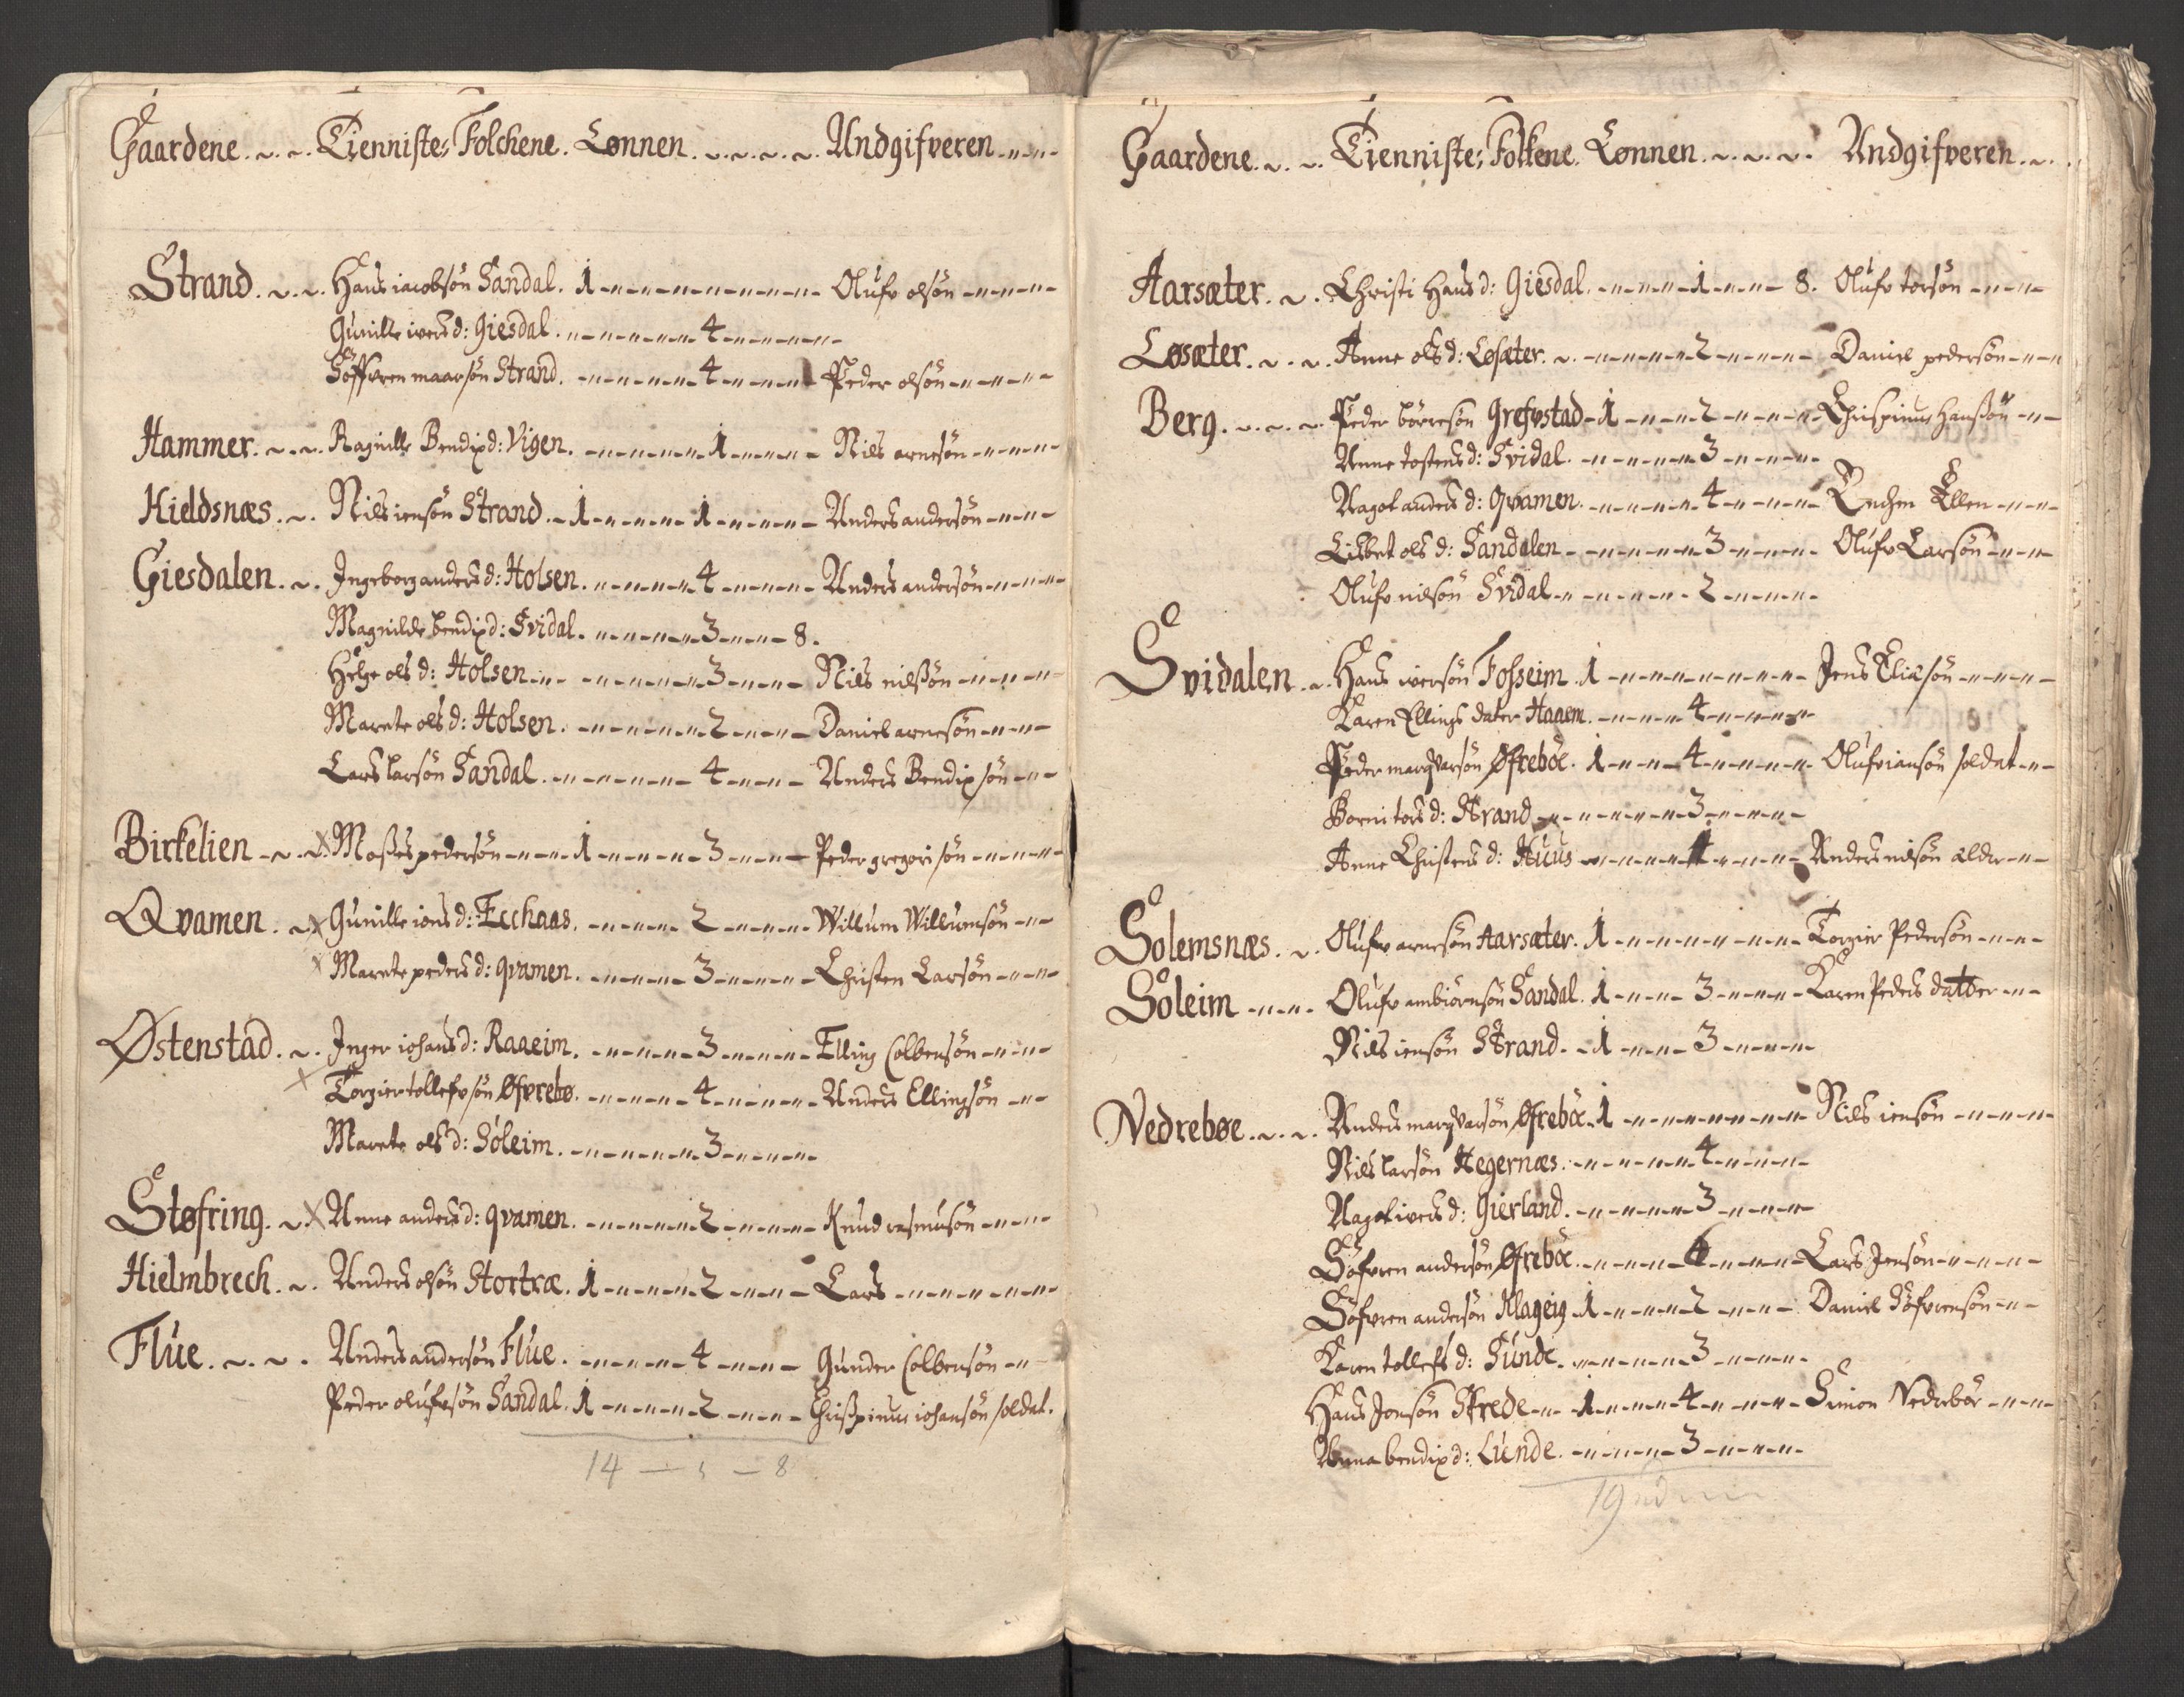 Gaardene. Tienniste Folchene. Lønnen. Andgifveren
Strand. Hans iacobsön Sandal. 1 Olufv olsön
Gunille ivers d: Giesdal. 4
Söffren maarsön Strand. 4 Peder olsön
Hammer. Ragnille Bendix d: Vigen. 1 Niels arnesön
Kieldsnæs. Nils iensön Strand. 1 1 Anders andersön
Giesdalen. Ingeborg anders d: Holsen. 4 Anders andersön
Magnilde bendix d: Svidal. 3 8.
Helge ols d: Holsen 3 Niels nilßön
Marete ols d: Holsen. 2 Daniel arnesön
Lars larsön Sandal. 4 Anders Bendixsön
Birkelien x Moßes pedersön 1 3 Peder gregorisön
Qvamen. x Gunille iens d: Ecchaas. 2 Willum Willumsön
x Marete peders d: qvamen. 3 Christen Larsön
Østenstad. Inger iohans d: Raaeim. 3 Elling Colbensön
x Torgier tollefvsön Øfvrebø. 4 Anders Ellingsön
Marete ols d: Söleim. 3
Støfring. x Anne anders d: qvamen. 2 Knud rasmusön
Hielmbrech. Anders olsön Stortræ. 1 2 Lars
Flüe. Anders andersön Flüe. 4 Gunder Colbensön
Peder olüfvsön Sandal. 1 2 Chrißpinus iohansön soldat.
14 — — 8
Gaardene. Tienniste Folkene. Lønnen. Andgifveren.
Aarsæter. Christi Hans d: Giesdal. 1 8. Olufv torsön
Løsæter. Anne ols d: Løsæter. 2 Daniel pedersön
Berg. Peder börresön Grefvstad 1 2 Chrispinus Hanßön
Anne tostens d: Svidal. 3
Aagot anders d: qvamen. 4 Enchen Ellen
Lisbet ols d: Sandalen 3 Olufv Larsön
Olufv nilsön Svidal 2
Svidalen. Hans iversön Foßeim. 1 Jens Eliæsön
Karen Ellings dater Haaem. 4
Peder marqvarsön Øfreböe. 1 4 Olufv iansön soldat
Borni tors d: Strand 3
Anne Christens d: Huus 4 Anders nilsön ældr
Solemsnæs. Olufv arnesön Aarsæter. 1 Torgier Pedersön
Söleim Olufv ambiörnsön Sandal. 1 3 Karen Peders datter
Nils iensön Strand. 1 3
Nedrebøe. Anders marqvarsön Øfreböe. 1 Niels iensön
Niels larsön Hegernæs. 4
Aagot ivers d: Gierland. 3
Söfvren andersön Øfreböe. 4 Lars Jensön
Söfvren andersön Klageig 1 2 Daniel Söfvrensön
Karen tollefs d: Sunde. 3
Hans Jonsön Strede 1 4 Simon Nedrebøe
Anna bendix d: Lunde. 3
19